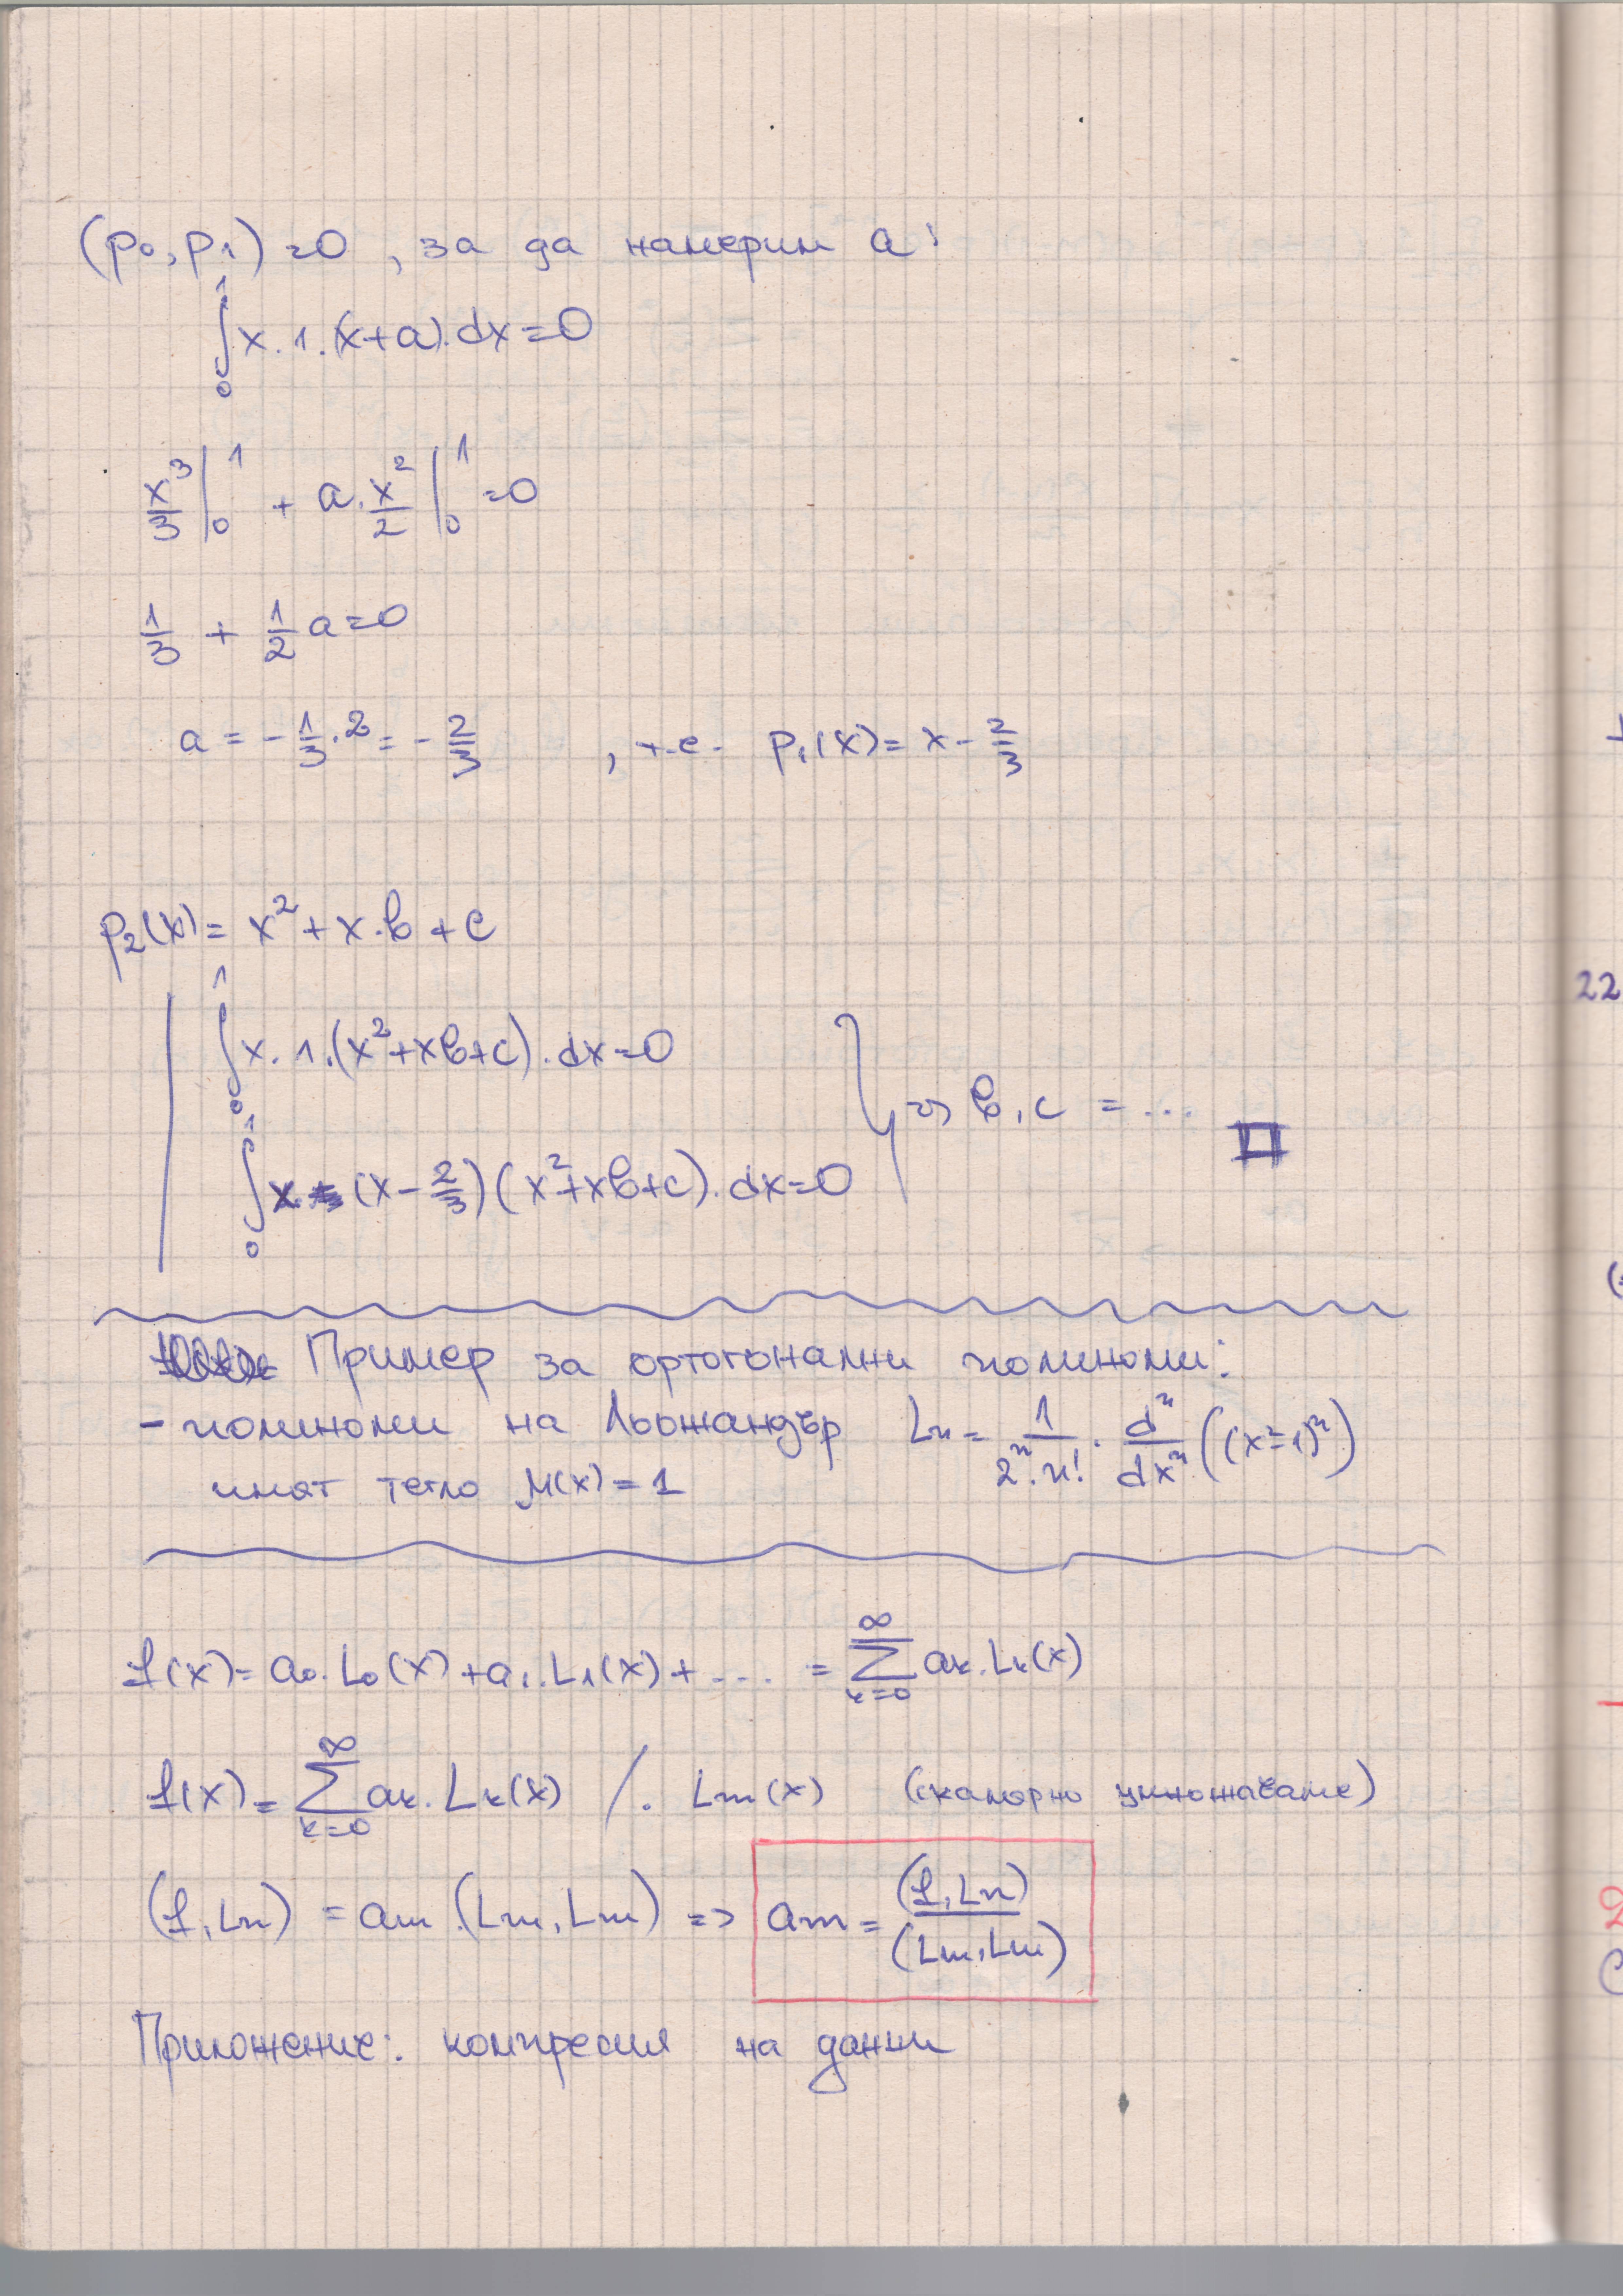 (p₀, p₁) = 0, за да намерим a:
∫₀¹ x.1.(x+a).dx=0
x³/3 |₀¹ + a.x²/2 |₀¹ =0
1/3 + 1/2 a=0
a = -1/3.2 = -2/3 , т.е. p₁(x)= x - 2/3
p₂(x)= x² + x.b + c
∫₀¹ x.1.(x²+xb+c).dx=0
=> b, c = ...
∫₀¹ x (x-2/3)(x²+xb+c).dx=0
Пример за ортогонални полиноми:
- полиноми на Льожандър Lₙ = 1/(2ⁿ.n!) . dⁿ/dxⁿ ((x²-1)ⁿ)
имат тегло μ(x)=1
f(x)= a₀.L₀(x)+a₁.L₁(x)+ .... = ∑ₖ₌₀^∞ aₖ.Lₖ(x)
f(x)= ∑ₖ₌₀^∞ aₖ.Lₖ(x) /. Lm(x) (скаларно умножаваме)
(f, Ln) = am.(Lm, Lm) => am = (f, Ln)/(Lm, Lm)
Приложение: компресия на данни
22